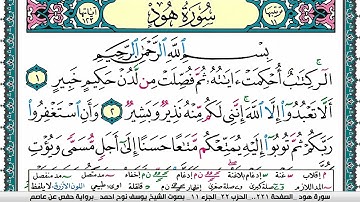 سُورَةُ هُودٍ
ترتيبها ١١
آياتها ١٢٣
بِسْمِ اللَّهِ الرَّحْمَٰنِ الرَّحِيمِ
الٓر كِتَٰبٌ أُحْكِمَتْ ءَايَٰتُهُۥ ثُمَّ فُصِّلَتْ مِن لَّدُنْ حَكِيمٍ خَبِيرٍ ١
أَلَّا تَعْبُدُوٓا۟ إِلَّا ٱللَّهَ إِنَّنِى لَكُم مِّنْهُ نَذِيرٌ وَبَشِيرٌ ٢ وَأَنِ ٱسْتَغْفِرُوا۟
رَبَّكُمْ ثُمَّ تُوبُوٓا۟ إِلَيْهِ يُمَتِّعْكُم مَّتَٰعًا حَسَنًا إِلَىٰٓ أَجَلٍ مُّسَمًّى وَيُؤْتِ
سورة هود - الصفحة ٢٢١ - الحزب ٢٢ - الجزء ١١ - بصوت الشيخ يوسف نوح أحمد - برواية حفص عن عاصم